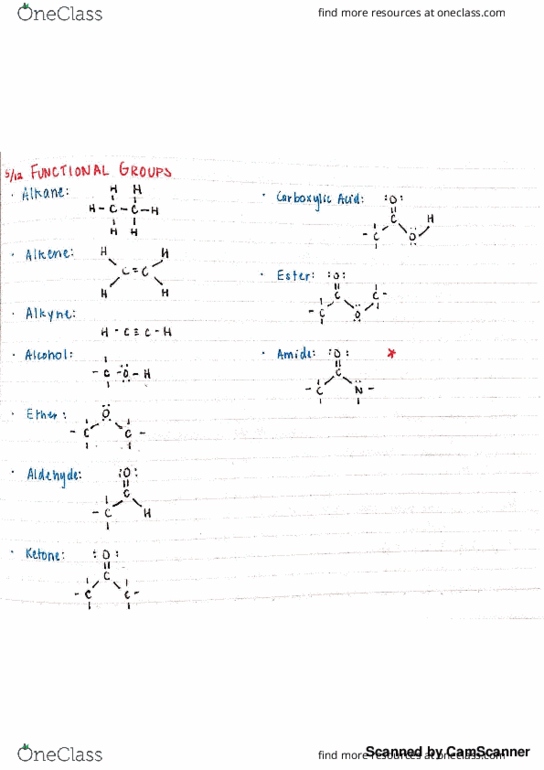 OneClass
find more resources at oneclass.com
5/12 FUNCTIONAL GROUPS
· Alkane:
H H
H-C-C-H
H H
· Alkene:
H H
C=C
H H
· Alkyne:
H-C≡C-H
· Alcohol:
-C-O-H
· Ether:
O
-C C-
· Aldehyde:
:O:
C
-C H
· Ketone:
:O:
C
-C C-
· Carboxylic Acid:
:O:
C H
-C O
· Ester:
:O:
C C-
-C O
· Amide: *
:O:
C
-C N-
OneClass
find more resources at oneclass.com
Scanned by CamScanner